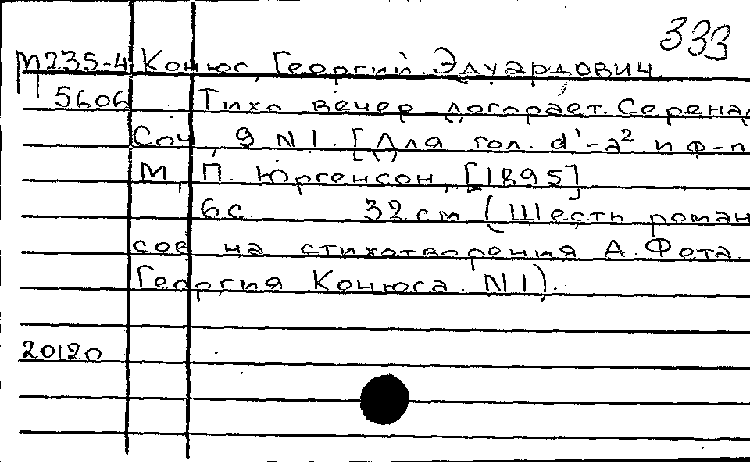 333
М235-4 Конюс, Георгий Эдуардович.
5606 Тихо вечер догорает. Серенад
Соч. 9 N1. [Для гол. d¹-a² и ф-п
М., П. Юргенсон, [1895]
6 с 32 см (Шесть роман
сов на стихотворения А. Фета.
Георгия Конюса. N1).
20120